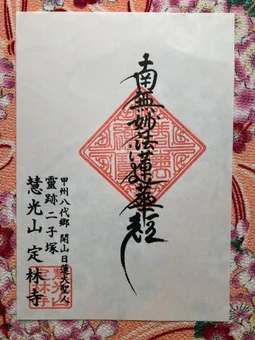 南無妙法蓮華経
甲州八代郷 開山 日蓮大聖人
霊跡二子塚
慧光山 定林寺